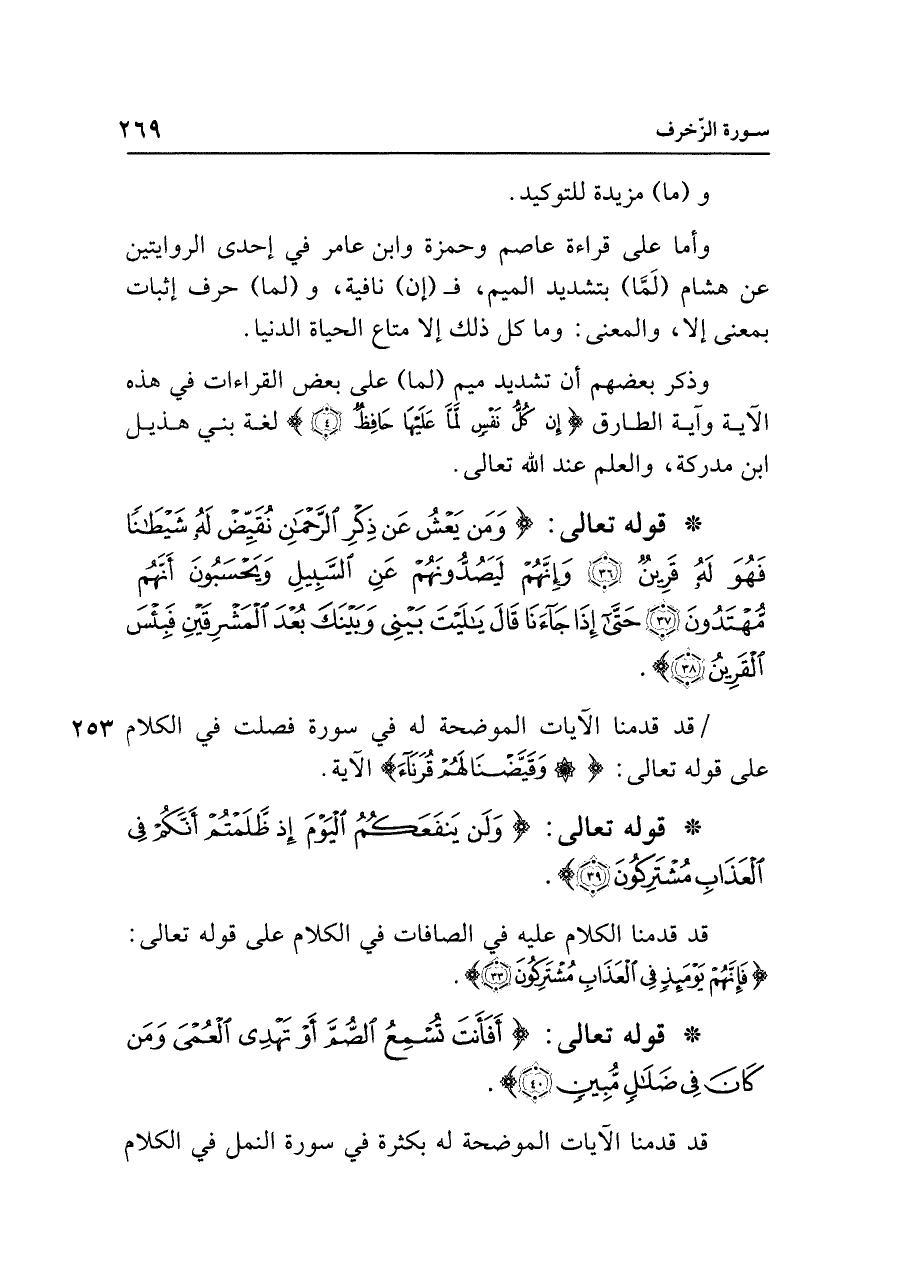 سورة الزّخرف ٢٦٩
و (ما) مزيدة للتوكيد.
وأما على قراءة عاصم وحمزة وابن عامر في إحدى الروايتين
عن هشام (لَمَّا) بتشديد الميم، فـ (إن) نافية، و (لما) حرف إثبات
بمعنى إلا، والمعنى: وما كل ذلك إلا متاع الحياة الدنيا.
وذكر بعضهم أن تشديد ميم (لما) على بعض القراءات في هذه
الآية وآية الطارق ﴿إِن كُلُّ نَفْسٍ لَّمَّا عَلَيْهَا حَافِظٌ ٤﴾ لغة بني هذيل
ابن مدركة، والعلم عند الله تعالى.
* قوله تعالى: ﴿وَمَن يَعْشُ عَن ذِكْرِ ٱلرَّحْمَٰنِ نُقَيِّضْ لَهُۥ شَيْطَٰنًا
فَهُوَ لَهُۥ قَرِينٌ ٣٦ وَإِنَّهُمْ لَيَصُدُّونَهُمْ عَنِ ٱلسَّبِيلِ وَيَحْسَبُونَ أَنَّهُم
مُّهْتَدُونَ ٣٧ حَتَّىٰٓ إِذَا جَآءَنَا قَالَ يَٰلَيْتَ بَيْنِى وَبَيْنَكَ بُعْدَ ٱلْمَشْرِقَيْنِ فَبِئْسَ
ٱلْقَرِينُ ٣٨﴾.
/ قد قدمنا الآيات الموضحة له في سورة فصلت في الكلام ٢٥٣
على قوله تعالى: ﴿۞ وَقَيَّضْنَا لَهُمْ قُرَنَآءَ﴾ الآية.
* قوله تعالى: ﴿وَلَن يَنفَعَكُمُ ٱلْيَوْمَ إِذ ظَّلَمْتُمْ أَنَّكُمْ فِى
ٱلْعَذَابِ مُشْتَرِكُونَ ٣٩﴾.
قد قدمنا الكلام عليه في الصافات في الكلام على قوله تعالى:
﴿فَإِنَّهُمْ يَوْمَئِذٍ فِى ٱلْعَذَابِ مُشْتَرِكُونَ ٣٣﴾.
* قوله تعالى: ﴿أَفَأَنتَ تُسْمِعُ ٱلصُّمَّ أَوْ تَهْدِى ٱلْعُمْىَ وَمَن
كَانَ فِى ضَلَٰلٍ مُّبِينٍ ٤٠﴾.
قد قدمنا الآيات الموضحة له بكثرة في سورة النمل في الكلام